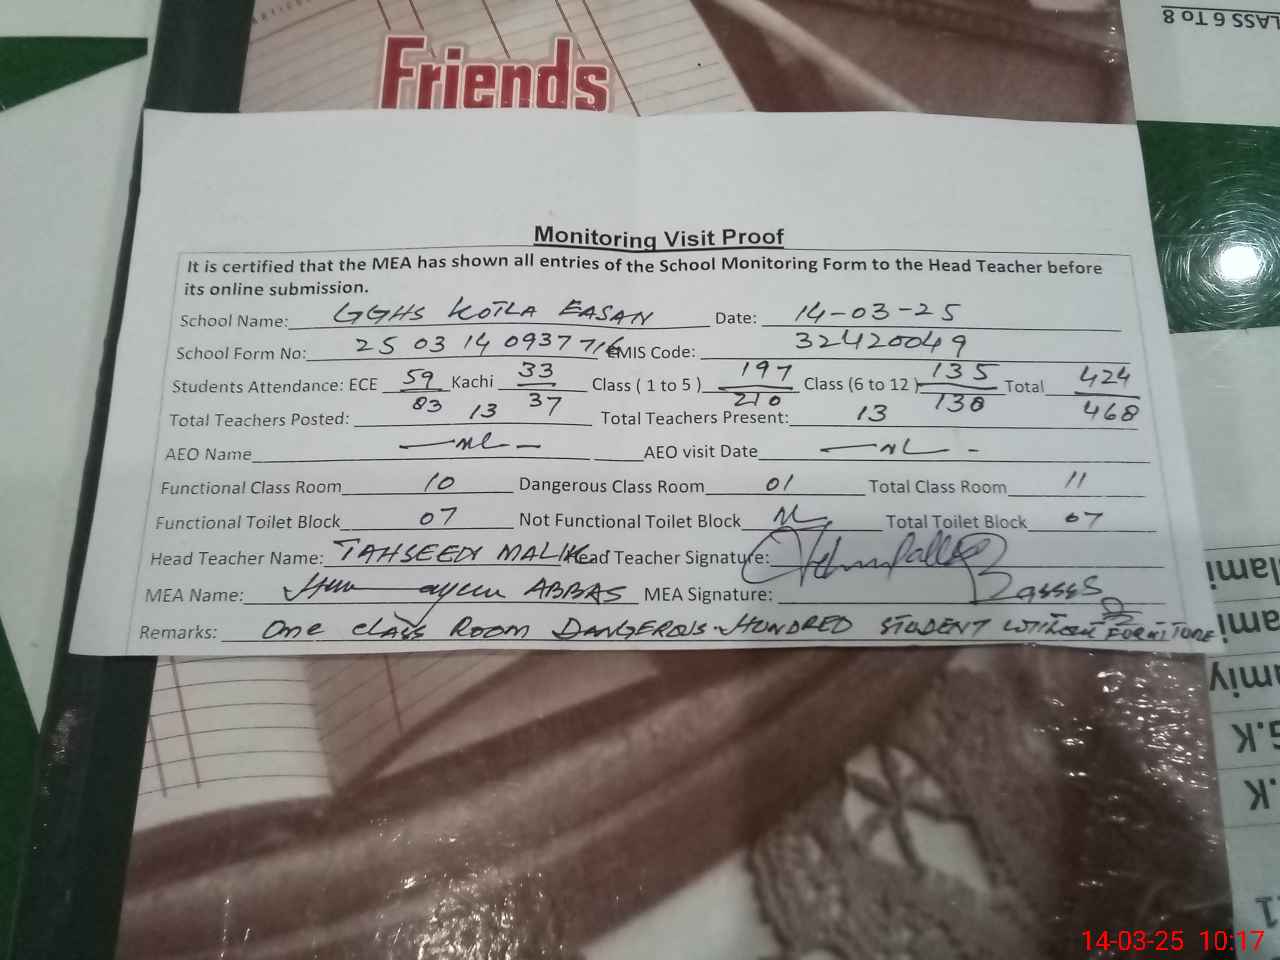 CLASS 6 TO 8
Friends
Monitoring Visit Proof
It is certified that the MEA has shown all entries of the School Monitoring Form to the Head Teacher before
its online submission.
School Name: GGHS KOTLA EASAN Date: 14-03-25
School Form No: 25 03 14 0937 716 EMIS Code: 32420049
Students Attendance: ECE 59 Kachi 33 Class ( 1 to 5 ) 197 Class (6 to 12 ) 135 Total 424
83 37 210 138 468
Total Teachers Posted: 13 Total Teachers Present: 13
AEO Name AEO visit Date
Functional Class Room 10 Dangerous Class Room 01 Total Class Room 11
Functional Toilet Block 07 Not Functional Toilet Block Total Toilet Block 07
Head Teacher Name: TAHSEEN MALIK Head Teacher Signature:
MEA Name: ABBAS MEA Signature:
Remarks: One class Room DANGEROUS HUNDRED STUDENT WITHOUT FORNITURE
14-03-25 10:17